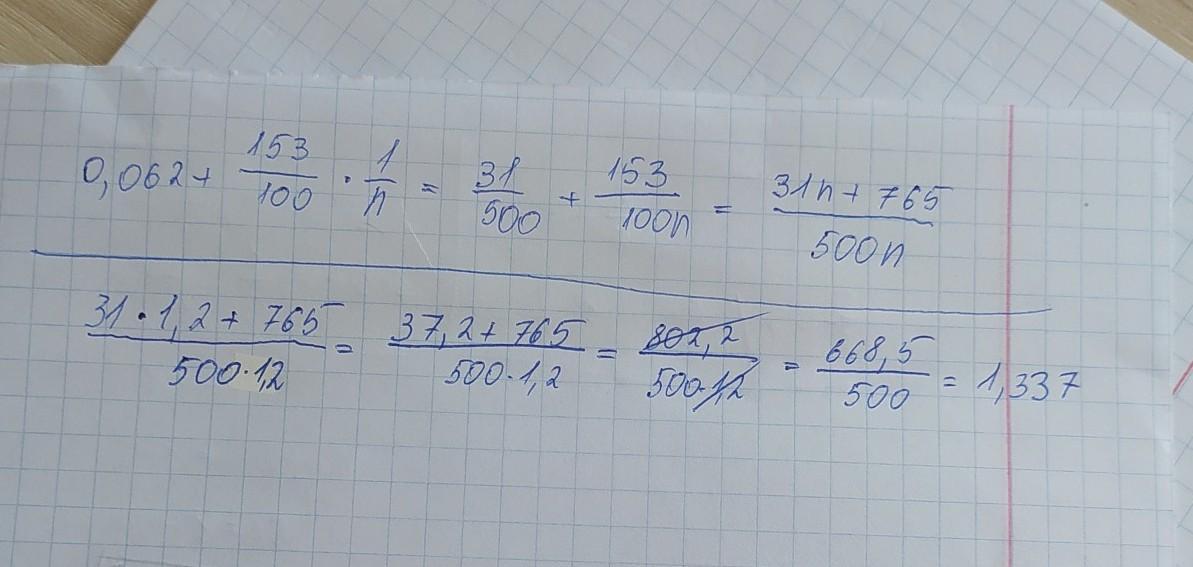 0,062 + 153/100 · 1/n = 31/500 + 153/100n = 31n + 765/500n
31 · 1,2 + 765/500 · 1,2 = 37,2 + 765/500 · 1,2 = 802,2/500 · 1,2 = 668,5/500 = 1,337